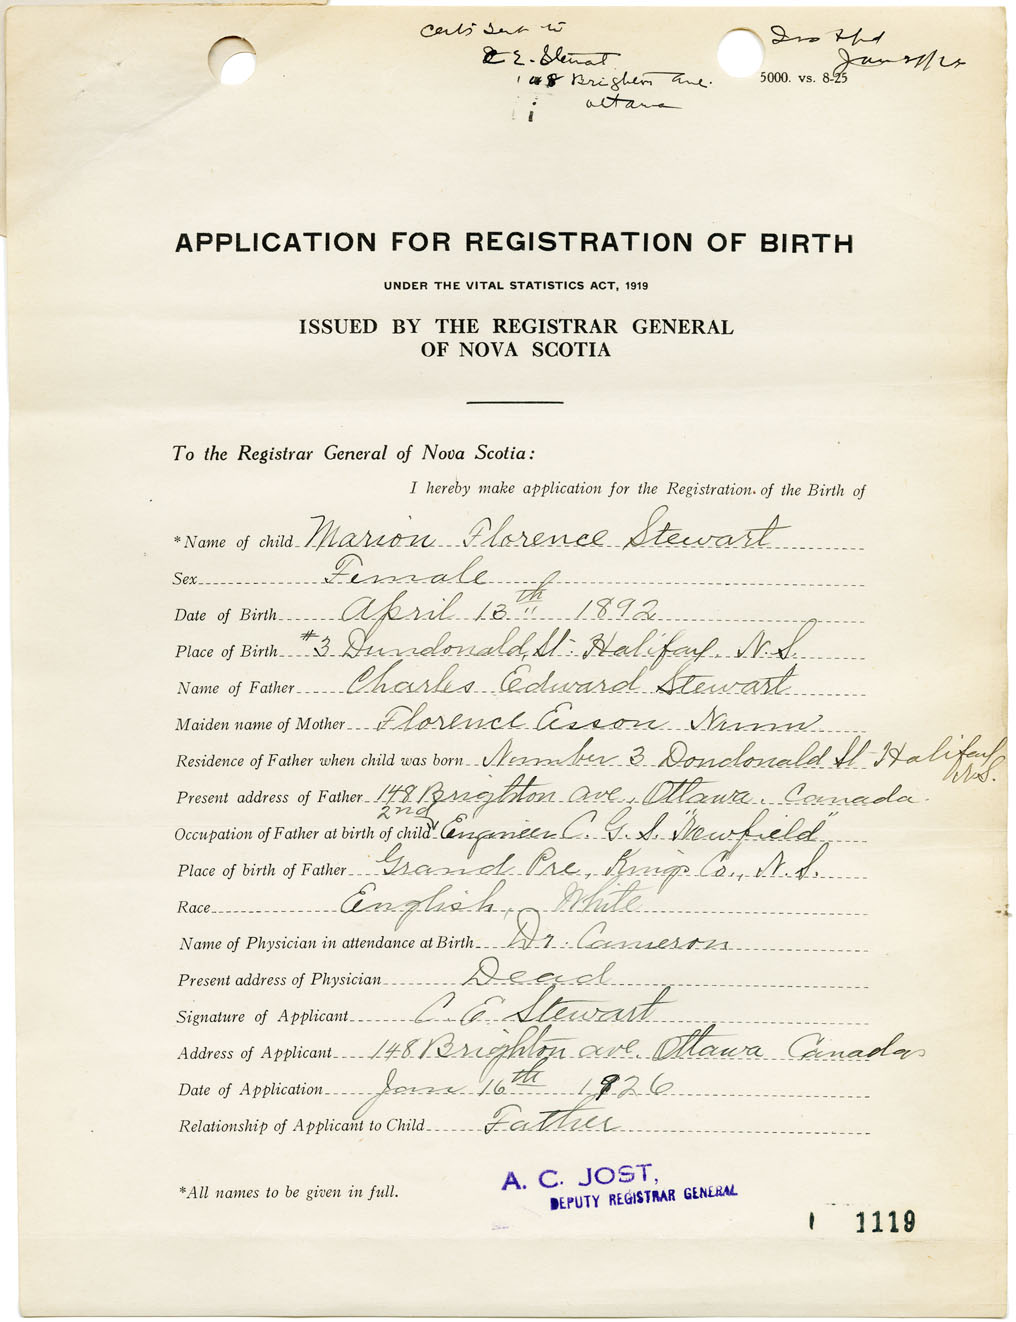 Certs Sent to
C E. Stewart
148 Brighton Ave.
Ottawa
5000. vs. 8-25
APPLICATION FOR REGISTRATION OF BIRTH
UNDER THE VITAL STATISTICS ACT, 1919
ISSUED BY THE REGISTRAR GENERAL
OF NOVA SCOTIA
To the Registrar General of Nova Scotia:
I hereby make application for the Registration of the Birth of
*Name of child Marion Florence Stewart
Sex Female
Date of Birth April 13th 1892
Place of Birth #3 Dundonald St. Halifax. N.S.
Name of Father Charles Edward Stewart
Maiden name of Mother Florence Esson Nunn
Residence of Father when child was born Number 3 Dondonald St Halifax N.S.
Present address of Father 148 Brighton ave, Ottawa. Canada.
Occupation of Father at birth of child 2nd Engineer C. G. S. "Newfield"
Place of birth of Father Grand Pre, Kings Co., N.S.
Race English, White
Name of Physician in attendance at Birth Dr. Cameron
Present address of Physician Dead
Signature of Applicant C. E. Stewart
Address of Applicant 148 Brighton ave. Ottawa Canada
Date of Application Jan 16th 1926
Relationship of Applicant to Child Father
*All names to be given in full.
A. C. JOST,
DEPUTY REGISTRAR GENERAL
1119